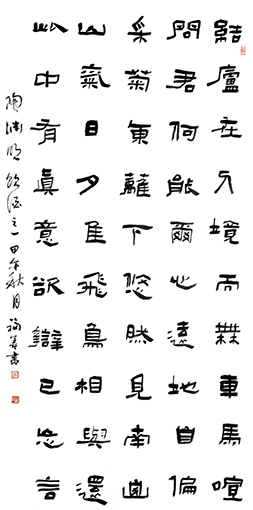 結廬在人境而無車馬喧
問君何能爾心遠地自偏
采菊東籬下悠然見南山
山氣日夕佳飛鳥相與還
此中有眞意欲辯已忘言
陶渊明飲酒之一甲午秋月福書